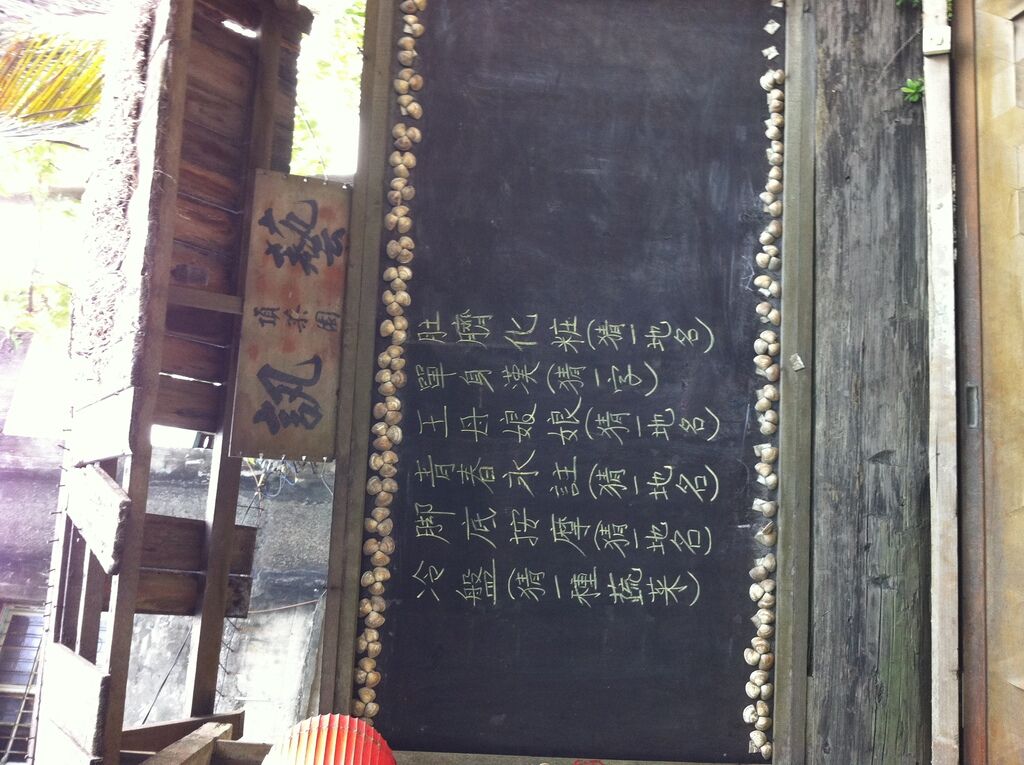 藝
頂菜園
訊
肚臍化粧(猜一地名)
單身漢(猜一字)
王母娘娘(猜一地名)
青春永註(猜一地名)
腳底按摩(猜一地名)
冷盤(猜一種蔬菜)